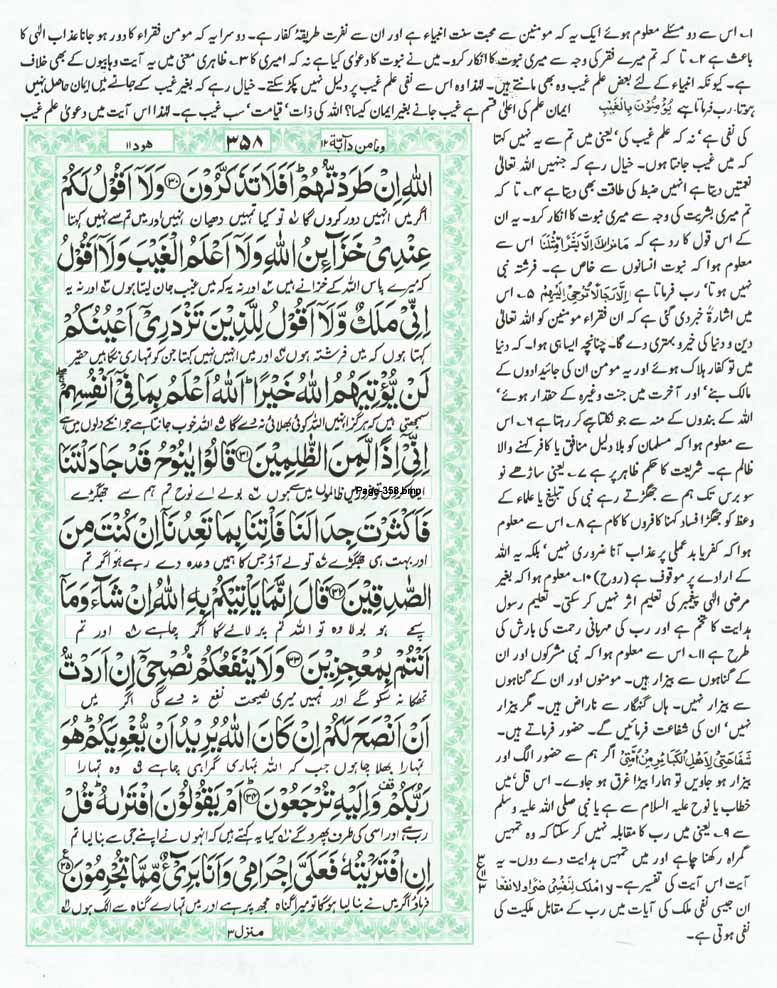 ۱۔ اس سے دو مسئلے معلوم ہوئے ایک یہ کہ مومنین سے محبت سنت انبیاء ہے اور ان سے نفرت طریقۂ کفار ہے۔ دوسرا یہ کہ مومن فقراء کا دور ہو جانا عذاب الٰہی کا
باعث ہے ۲۔ تا کہ تم میرے فقر کی وجہ سے میری نبوت کا انکار کرو۔ میں نے نبوت کا دعویٰ کیا ہے نہ کہ امیری کا ۳۔ ظاہری معنی میں یہ آیت وہابیوں کے بھی خلاف
ہے۔ کیونکہ انبیاء کے لئے بعض علم غیب وہ بھی مانتے ہیں۔ لہٰذا وہ اس سے نفی علم غیب پر دلیل نہیں پکڑ سکتے۔ خیال رہے کہ بغیر غیب کے جانے میں ایمان حاصل نہیں
ہوتا، رب فرماتا ہے یُؤْمِنُوْنَ بِالْغَیْبِ ایمان علم کی اعلیٰ قسم ہے غیب جانے بغیر ایمان کیسا؟ اللہ کی ذات، قیامت، سب غیب ہے۔ لہٰذا اس آیت میں دعویٰ علم غیب
کی نفی ہے، نہ کہ علم غیب کی، یعنی میں تم سے یہ نہیں کہتا
کہ میں غیب جانتا ہوں۔ خیال رہے کہ جنہیں اللہ تعالیٰ
نعمتیں دیتا ہے انہیں ضبط کی طاقت بھی دیتا ہے ۴۔ تا کہ
تم میری بشریت کی وجہ سے میری نبوت کا انکار کرو۔ یہ ان
کے اس قول کا رد ہے کہ مَا نَرٰىكَ اِلَّا بَشَرًا مِّثْلَنَا اس سے
معلوم ہوا کہ نبوت انسانوں سے خاص ہے۔ فرشتہ نبی
نہیں ہوتا، رب فرماتا ہے اِلَّا رِجَالًا نُّوْحِیْۤ اِلَیْهِمْ ۵۔ اس
میں اشارۃً خبر دی گئی ہے کہ ان فقراء مومنین کو اللہ تعالیٰ
دین و دنیا کی خیر و بہتری دے گا۔ چنانچہ ایسا ہی ہوا۔ کہ دنیا
میں تو کفار ہلاک ہوئے اور یہ مومن ان کی جائیدادوں کے
مالک بنے، اور آخرت میں جنت وغیرہ کے حقدار ہوئے،
اللہ کے بندوں کے منہ سے جو نکلتا ہے کر رہتا ہے ۶۔ اس
سے معلوم ہوا کہ مسلمان کو بلا دلیل منافق یا کافر کہنے والا
ظالم ہے۔ شریعت کا حکم ظاہر پر ہے ۷۔ یعنی ساڑھے نو
سو برس تک ہم سے جھگڑتے رہے نبی کی تبلیغ یا علماء کے
وعظ کو جھگڑا فساد کہنا کافروں کا کام ہے ۸۔ اس سے معلوم
ہوا کہ کفر یا بد عملی پر عذاب آنا ضروری نہیں، بلکہ یہ اللہ
کے ارادے پر موقوف ہے (روح) ۱۰۔ معلوم ہوا کہ بغیر
مرضی الٰہی پیغمبر کی تعلیم اثر نہیں کر سکتی۔ تعلیم رسول
ہدایت کا تخم ہے اور رب کی مہربانی رحمت کی بارش کی
طرح ہے ۱۱۔ اس سے معلوم ہوا کہ نبی مشرکوں اور ان
کے گناہوں سے بیزار ہیں۔ مومنوں اور ان کے گناہوں
سے بیزار نہیں۔ ہاں گنہگار سے ناراض ہیں۔ مگر بیزار
نہیں، ان کی شفاعت فرمائیں گے۔ حضور فرماتے ہیں۔
شَفَاعَتِیْ لِاَهْلِ الْكَبَائِرِ مِنْ اُمَّتِیْ اگر ہم سے حضور الگ اور
بیزار ہو جاویں تو ہمارا بیڑا غرق ہو جاوے۔ اس قل میں
خطاب یا نوح علیہ السلام سے ہے یا نبی صلی اللہ علیہ وسلم
سے ۹۔ یعنی میں رب کا مقابلہ نہیں کر سکتا کہ وہ تمہیں
گمراہ رکھنا چاہے اور میں تمہیں ہدایت دے دوں۔ یہ
آیت اس آیت کی تفسیر ہے۔ لَا اَمْلِكُ لِنَفْسِیْ ضَرًّا وَّلَا نَفْعًا
ان جیسی نفی ملک کی آیات میں رب کے مقابل ملکیت کی
نفی ہوتی ہے۔
ومامن دآبۃ ۱۲ ۳۵۸ ھود ۱۱
اللّٰهِ اِنْ طَرَدْتُّهُمْ اَفَلَا تَذَكَّرُوْنَ ﴿۳۰﴾ وَلَاۤ اَقُوْلُ لَكُمْ
اگر میں انہیں دور کروں گا تو کیا تمہیں دھیان نہیں اور میں تم سے نہیں کہتا
عِنْدِیْ خَزَآىِٕنُ اللّٰهِ وَلَاۤ اَعْلَمُ الْغَیْبَ وَلَاۤ اَقُوْلُ
کہ میرے پاس اللہ کے خزانے ہیں اور نہ یہ کہ میں غیب جان لیتا ہوں اور نہ یہ
اِنِّیْ مَلَكٌ وَّلَاۤ اَقُوْلُ لِلَّذِیْنَ تَزْدَرِیْۤ اَعْیُنُكُمْ
کہتا ہوں کہ میں فرشتہ ہوں اور میں انہیں نہیں کہتا جن کو تمہاری نگاہیں حقیر
لَنْ یُّؤْتِیَهُمُ اللّٰهُ خَیْرًا ؕ اَللّٰهُ اَعْلَمُ بِمَا فِیْۤ اَنْفُسِهِمْ
سمجھتی ہیں کہ ہرگز انہیں اللہ کوئی بھلائی نہ دے گا اللہ خوب جانتا ہے جو انکے دلوں میں ہے
اِنِّیْۤ اِذًا لَّمِنَ الظّٰلِمِیْنَ ﴿۳۱﴾ قَالُوْا یٰنُوْحُ قَدْ جَادَلْتَنَا
ایسا کروں تو ضرور میں ظالموں میں سے ہوں بولے اے نوح تم ہم سے جھگڑے
Paag-358.bmp
فَاَكْثَرْتَ جِدَالَنَا فَاْتِنَا بِمَا تَعِدُنَاۤ اِنْ كُنْتَ مِنَ
اور بہت ہی جھگڑے تو لے آؤ جس کا ہمیں وعدہ دے رہے ہو اگر تم
الصّٰدِقِیْنَ ﴿۳۲﴾ قَالَ اِنَّمَا یَاْتِیْكُمْ بِهِ اللّٰهُ اِنْ شَآءَ وَمَاۤ
سچے ہو بولا وہ تو اللہ تم پر لائے گا اگر چاہے اور تم
اَنْتُمْ بِمُعْجِزِیْنَ ﴿۳۳﴾ وَلَا یَنْفَعُكُمْ نُصْحِیْۤ اِنْ اَرَدْتُّ
تھکا نہ سکو گے اور تمہیں میری نصیحت نفع نہ دے گی اگر میں
اَنْ اَنْصَحَ لَكُمْ اِنْ كَانَ اللّٰهُ یُرِیْدُ اَنْ یُّغْوِیَكُمْ ؕ هُوَ
تمہارا بھلا چاہوں جب کہ اللہ تمہاری گمراہی چاہے وہ تمہارا
رَبُّكُمْ وَاِلَیْهِ تُرْجَعُوْنَ ﴿۳۴﴾ اَمْ یَقُوْلُوْنَ افْتَرٰىهُ ؕ قُلْ
رب ہے اور اسی کی طرف پھرو گے کیا یہ کہتے ہیں کہ انہوں نے اپنے جی سے بنا لیا تم
اِنِ افْتَرَیْتُهٗ فَعَلَیَّ اِجْرَامِیْ وَاَنَا بَرِیْٓءٌ مِّمَّا تُجْرِمُوْنَ ﴿۳۵﴾
فرماؤ اگر میں نے بنا لیا ہو گا تو میرا گناہ مجھ پر ہے اور میں تمہارے گناہ سے الگ ہوں
منزل ۳